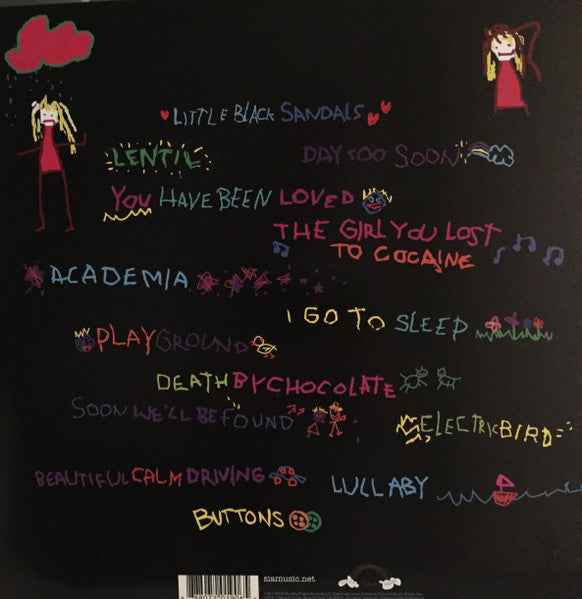 LITTLE BLACK SANDALS
LENTIL
DAY TOO SOON
YOU HAVE BEEN LOVED
THE GIRL YOU LOST
TO COCAINE
ACADEMIA
I GO TO SLEEP
PLAYGROUND
DEATH BY CHOCOLATE
SOON WE'LL BE FOUND
ELECTRIC BIRD
BEAUTIFUL CALM DRIVING
LULLABY
BUTTONS
siamusic.net